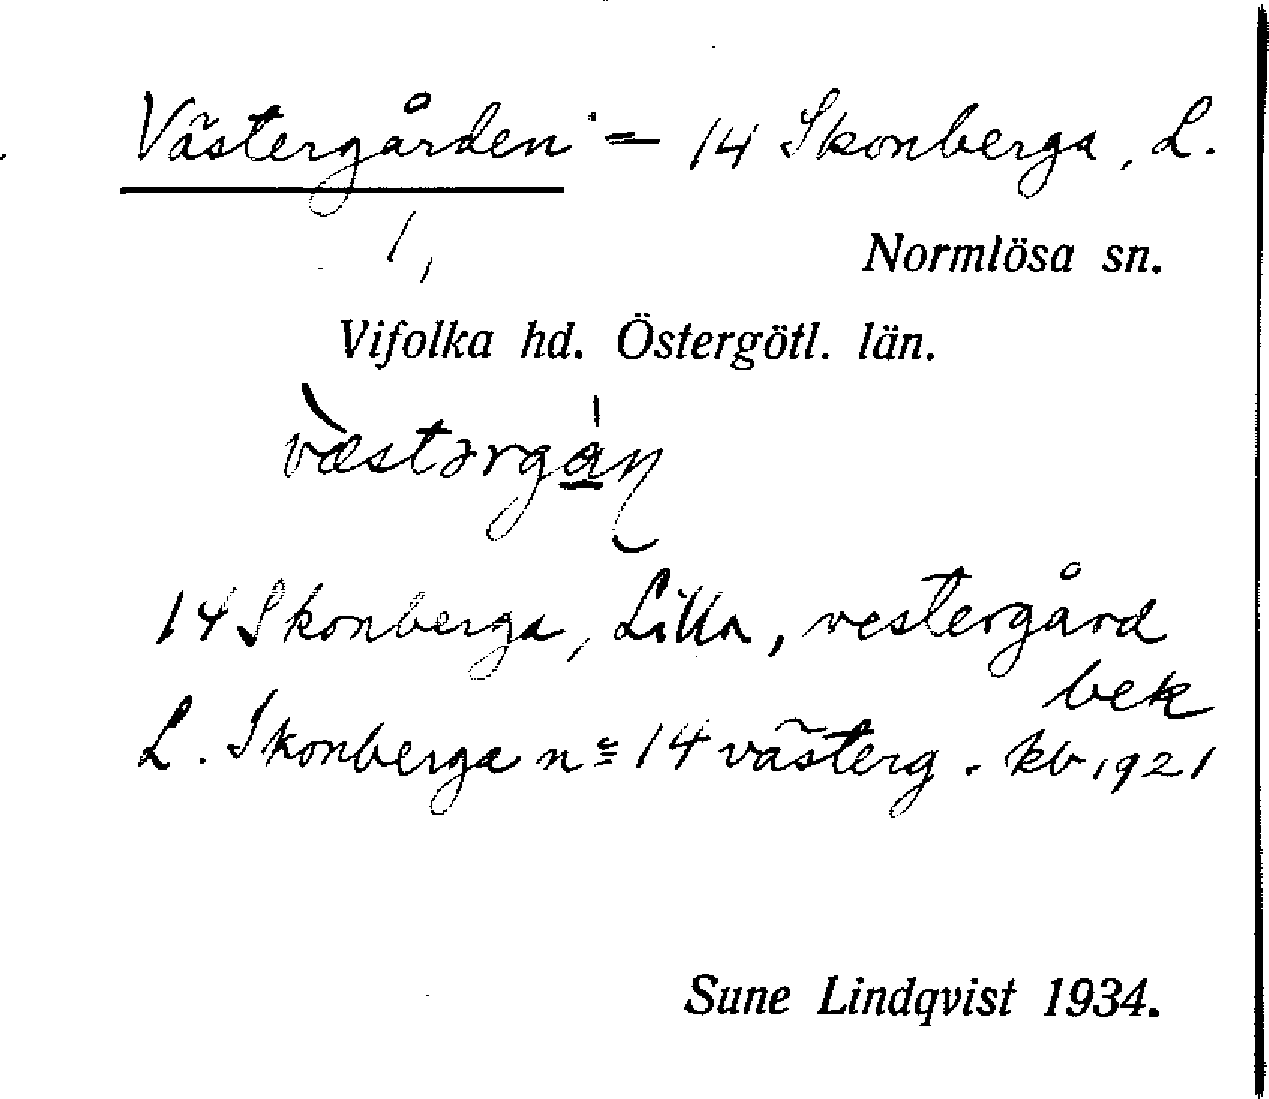 Västergården = 14 Skonberga, L.
Normlösa sn.
Vifolka hd. Östergötl. län.
væstərgån
14 Skonberga, Lilla, vestergård
bek
L. Skonberga no 14 västerg. kb 1921
Sune Lindqvist 1934.